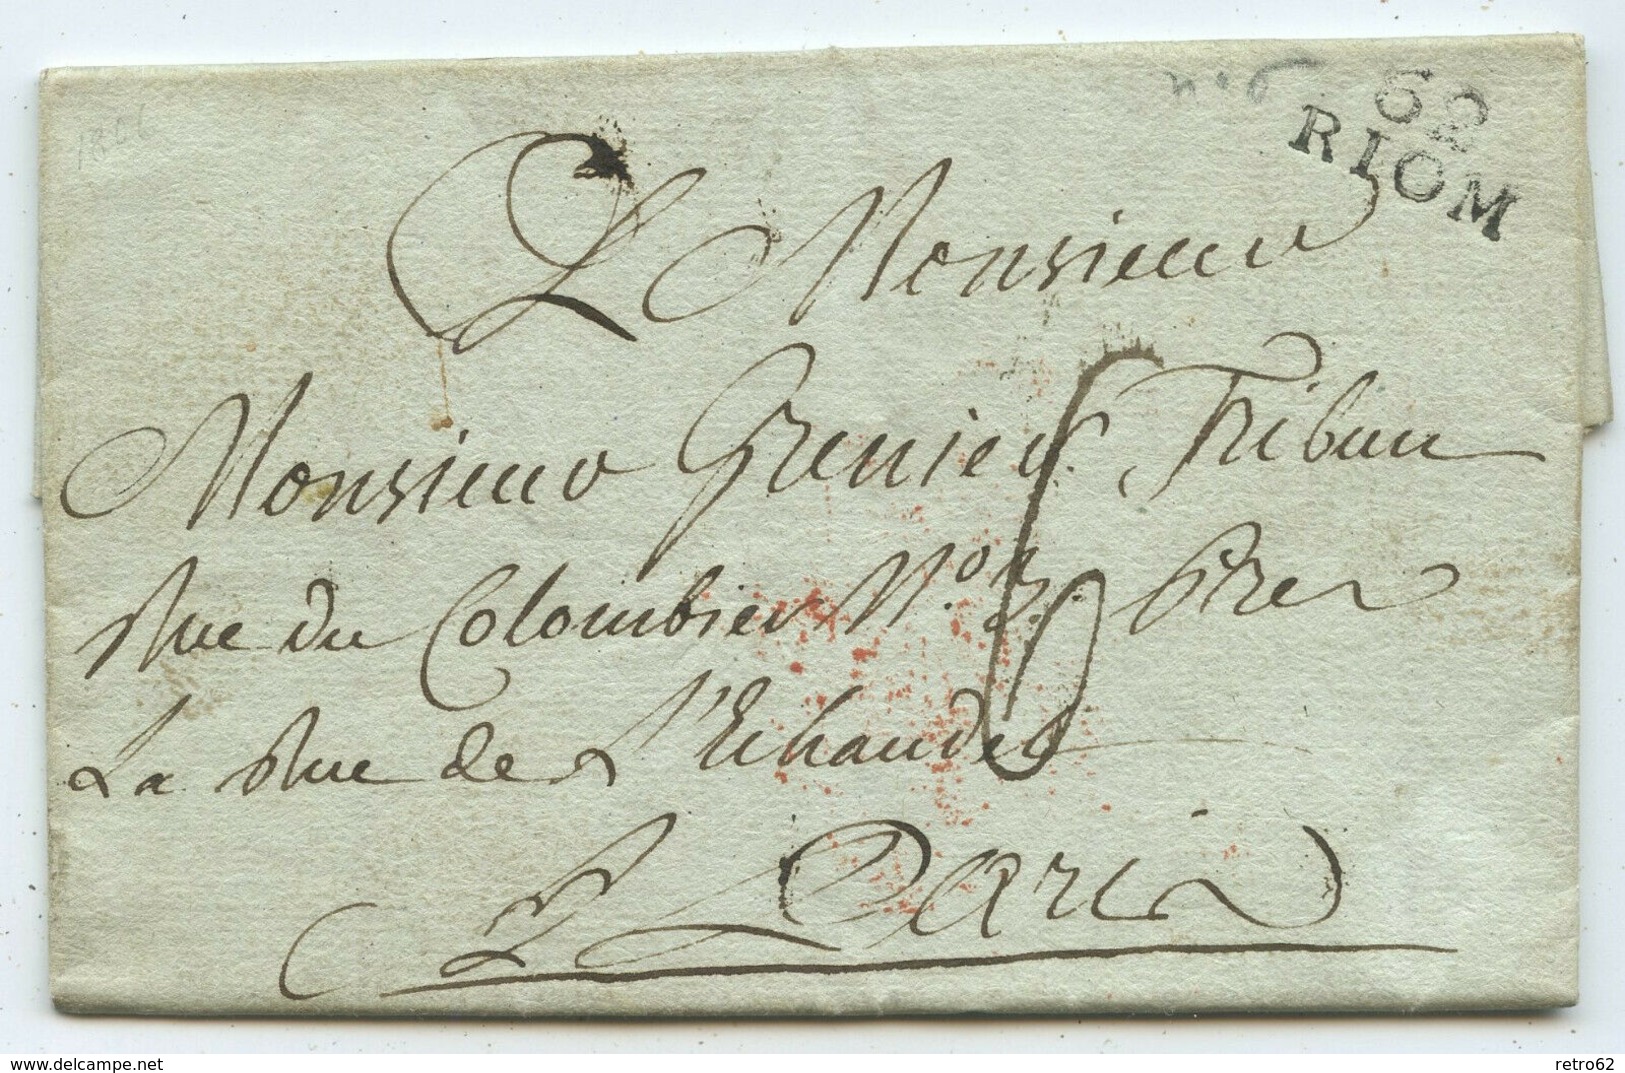 1806
n° 6
62
RIOM
A Monsieur
Monsieur Grenier Tribun
6
Rue du Colombier N.° 3. Pres
La Rue de L'Echaudé
A Paris
www.delcampe.net
retro62